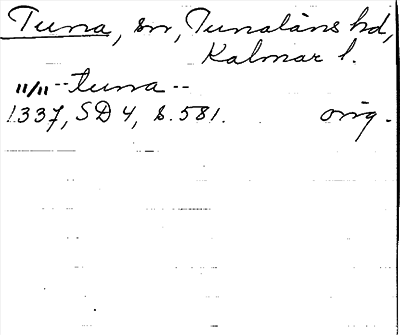 Tuna, sn, Tunaläns hd,
Kalmar l.
"/" -- tuna --
1337, SD 4, s. 581. orig.